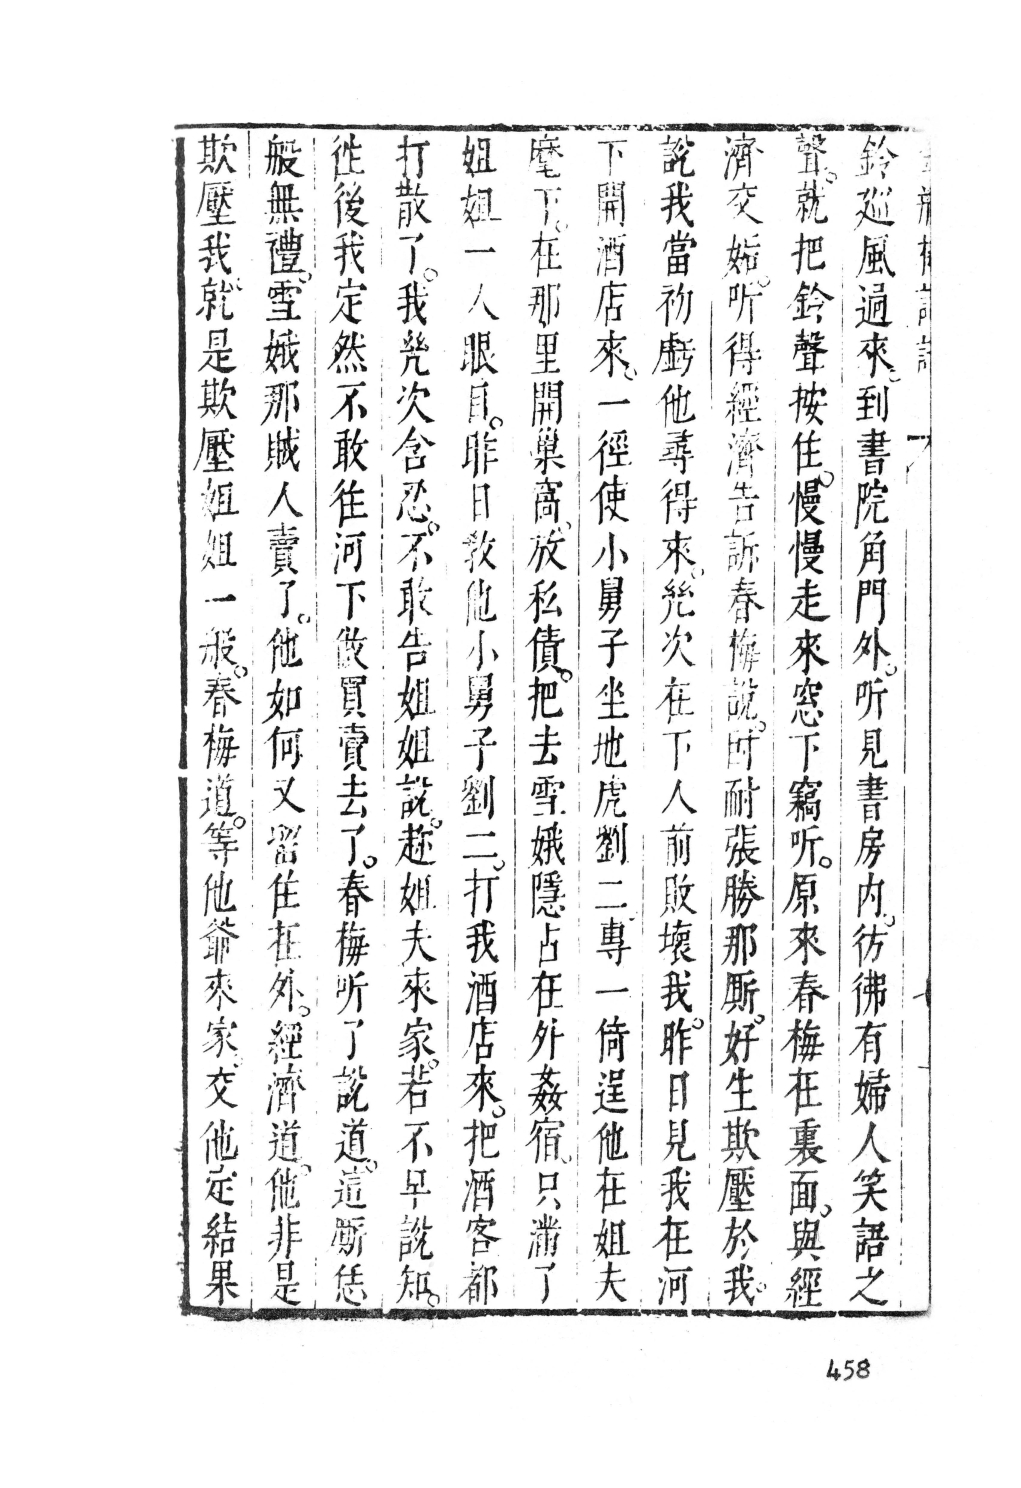 鈴廵風過來到書院角門外。听見書房内。彷彿有婦人笑語之
聲。就把鈴聲按住。慢慢走來窓下竊听。原來春梅在裏面。與經
濟交姤。听得經濟告訴春梅說。叵耐張勝那厮。好生欺壓於我。
說我當初虧他尋得來。㡬次在下人前敗壞我。昨日見我在河
下開酒店來。一徑使小舅子坐地虎劉二。專一倚逞他在姐夫
麾下。在那里開巢窩。放私債。把去雪娥隱占在外姦宿。只瞞了
姐姐一人眼目。昨日教他小舅子劉二。打我酒店來。把酒客都
打散了。我㡬次含忍。不敢告姐姐說。趂姐夫來家。若不早說知。
徃後我定然不敢往河下做買賣去了。春梅听了說道。這厮恁
般無禮。雪娥那賊人賣了。他如何又畱住在外。經濟道。他非是
欺壓我。就是欺壓姐姐一般。春梅道。等他爺來家。交他定結果
458